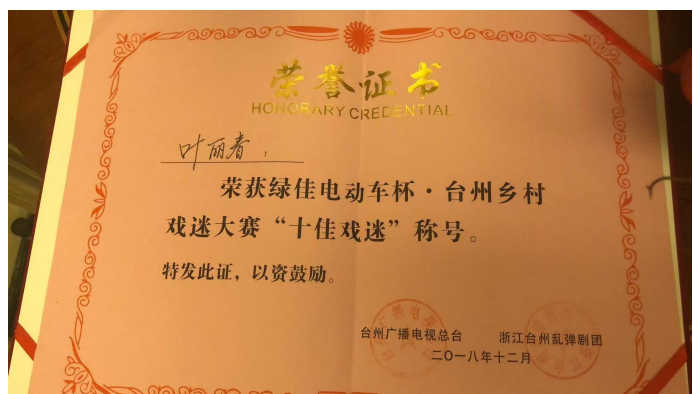 荣誉证书
HONORARY CREDENTIAL
叶丽春：
荣获绿佳电动车杯·台州乡村
戏迷大赛“十佳戏迷”称号。
特发此证，以资鼓励。
台州广播电视总台 浙江台州乱弹剧团
二〇一八年十二月